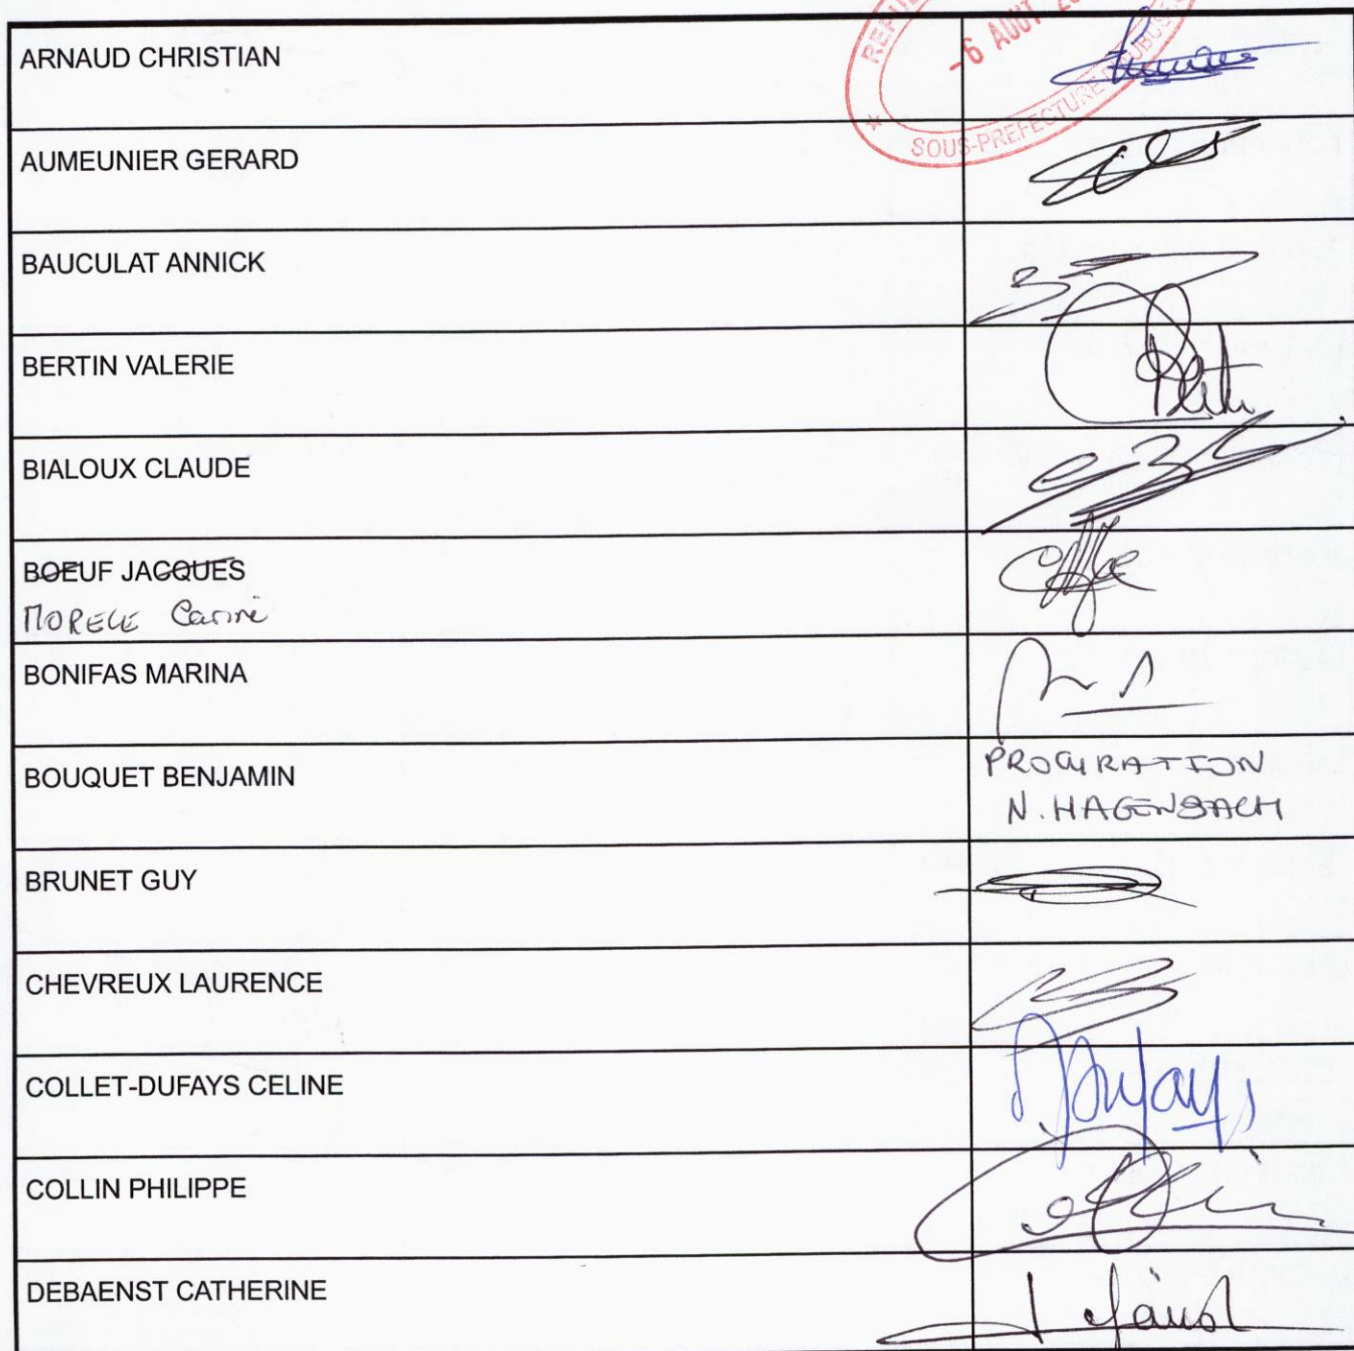 ARNAUD CHRISTIAN
-6 AOUT
SOUS-PREFECTURE
AUMEUNIER GERARD
BAUCULAT ANNICK
BERTIN VALERIE
BIALOUX CLAUDE
BOEUF JACQUES
BONIFAS MARINA
BOUQUET BENJAMIN
PROCURATION
N. HAGENBACH
BRUNET GUY
CHEVREUX LAURENCE
COLLET-DUFAYS CELINE
Dufays
COLLIN PHILIPPE
DEBAENST CATHERINE